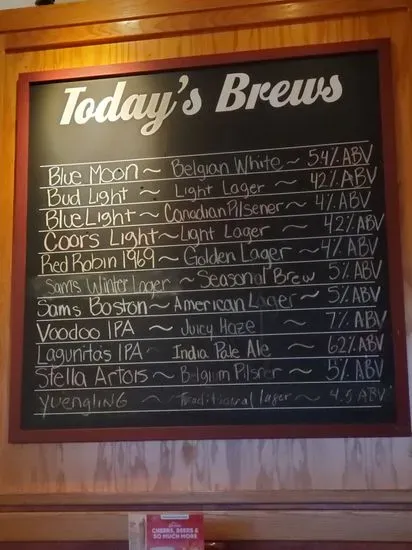 Today's Brews
Blue Moon ~ Belgian White ~ 5.4% ABV
Bud Light ~ Light Lager ~ 4.2% ABV
Blue Light ~ Canadian Pilsener ~ 4% ABV
Coors Light ~ Light Lager ~ 4.2% ABV
Red Robin 1969 ~ Golden Lager ~ 4% ABV
Sams Winter Lager ~ Seasonal Brew 5% ABV
Sams Boston ~ American Lager ~ 5% ABV
Voodoo IPA ~ Juicy Haze ~ 7% ABV
Lagunitas IPA ~ India Pale Ale ~ 6.2% ABV
Stella Artois ~ Belgium Pilsner ~ 5% ABV
Yuengling ~ Traditional Lager ~ 4.5 ABV
CHEERS, BEERS &
SO MUCH MORE